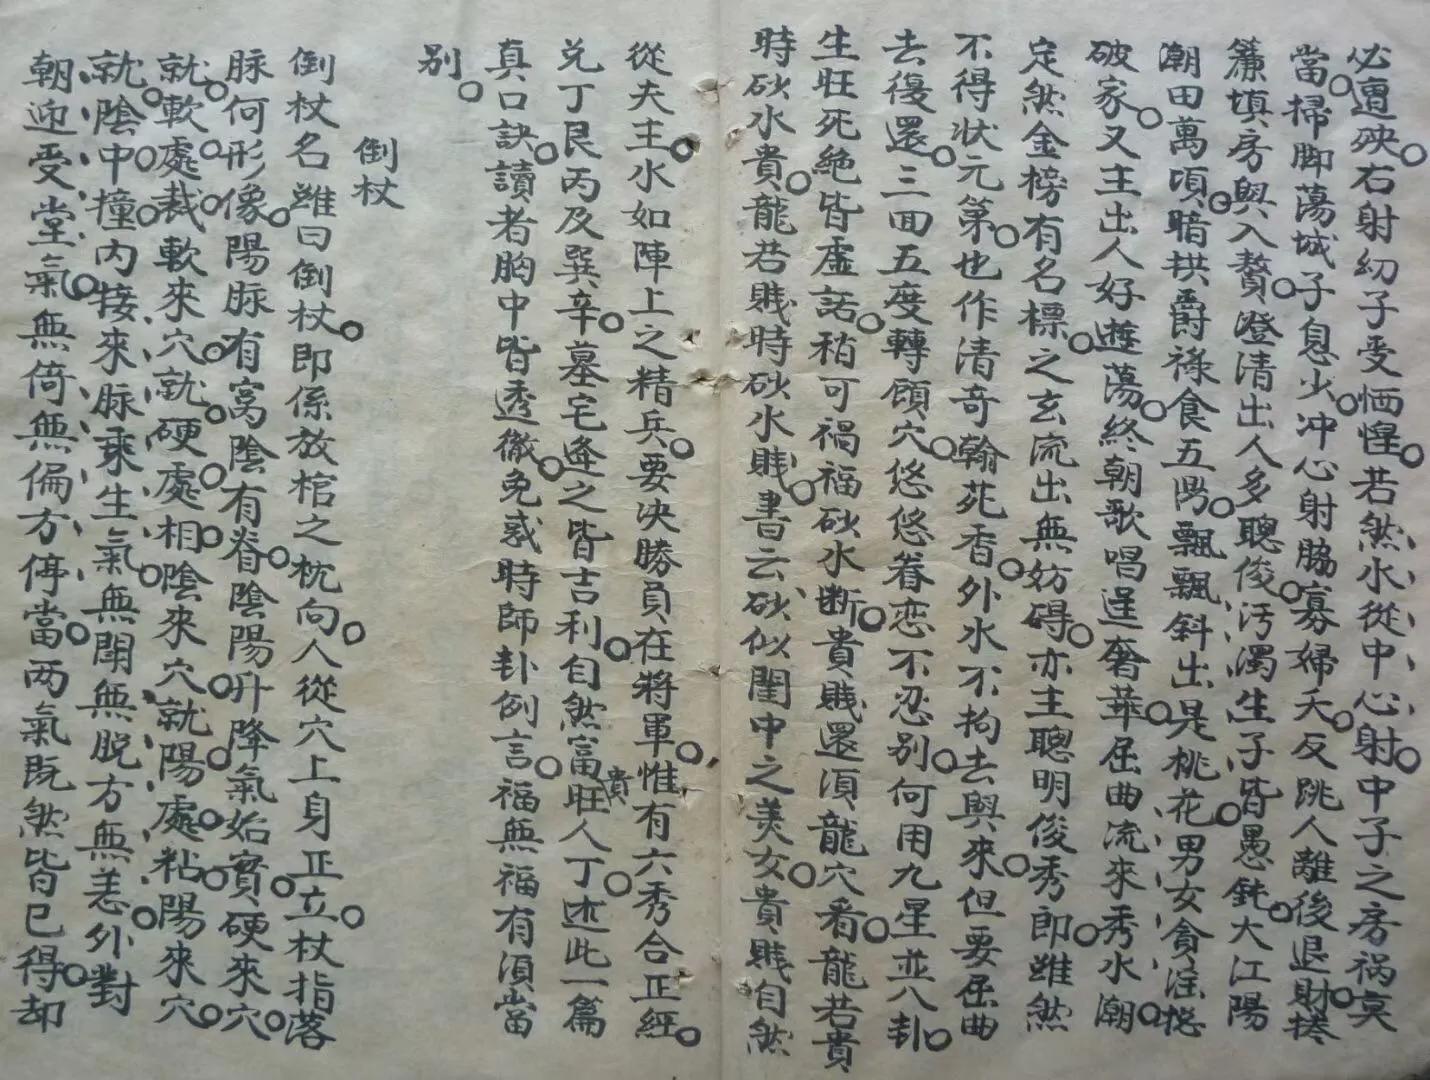 必遭殃右射㓜子受恓惶若然水從中心射中子之房祸莫
當掃脚蕩城子息少冲心射脇寡婦夭反跳人離後退財捲
簾塡房與入贅澄清出人多聰俊汚濁生子皆愚鈍大江陽
潮田萬頃暗拱爵祿食五馬飄飄斜出是桃花男女貪淫捴
破家又主出人好遊蕩終朝歌唱逞奢華屈曲流來秀水潮
定然金榜有名標之玄流出無妨碍亦主聰明俊秀郎雖然
不得状元第也作清奇翰苑香外水不拘去與來但要屈曲
去復還三囬五度轉顧穴悠悠眷恋不忍别何用九星並八卦
生旺死絶皆虛諾稍可禍福砂水断貴賎還湏龍穴看龍若貴
時砂水貴龍若賎時砂水賎書云砂似閨中之美女貴賎自然
從夫主水如陣上之精兵要决勝負在將軍惟有六秀合正經
兑丁艮丙及巽辛墓宅逄之皆吉利自然富貴旺人丁述此一篇
真口訣讀者胸中皆透徹免惑時師卦例言福無福有湏當
别
倒杖
倒杖名雖曰倒杖即係放棺之枕向人從穴上身正立杖指落
脉何形像陽脉有窩陰有脊陰陽升降氣始實硬來穴
就軟處裁軟來穴就硬處相陰來穴就陽處粘陽來穴
就陰中撞内接來脉乘生氣無閗無脱方無恙外對
朝迎受堂氣無倚無偏方停當两氣既然皆已得却